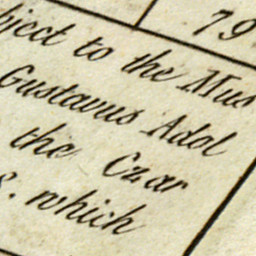 79
bject to the Mus
Gustavus Adol
the Czar
8. which